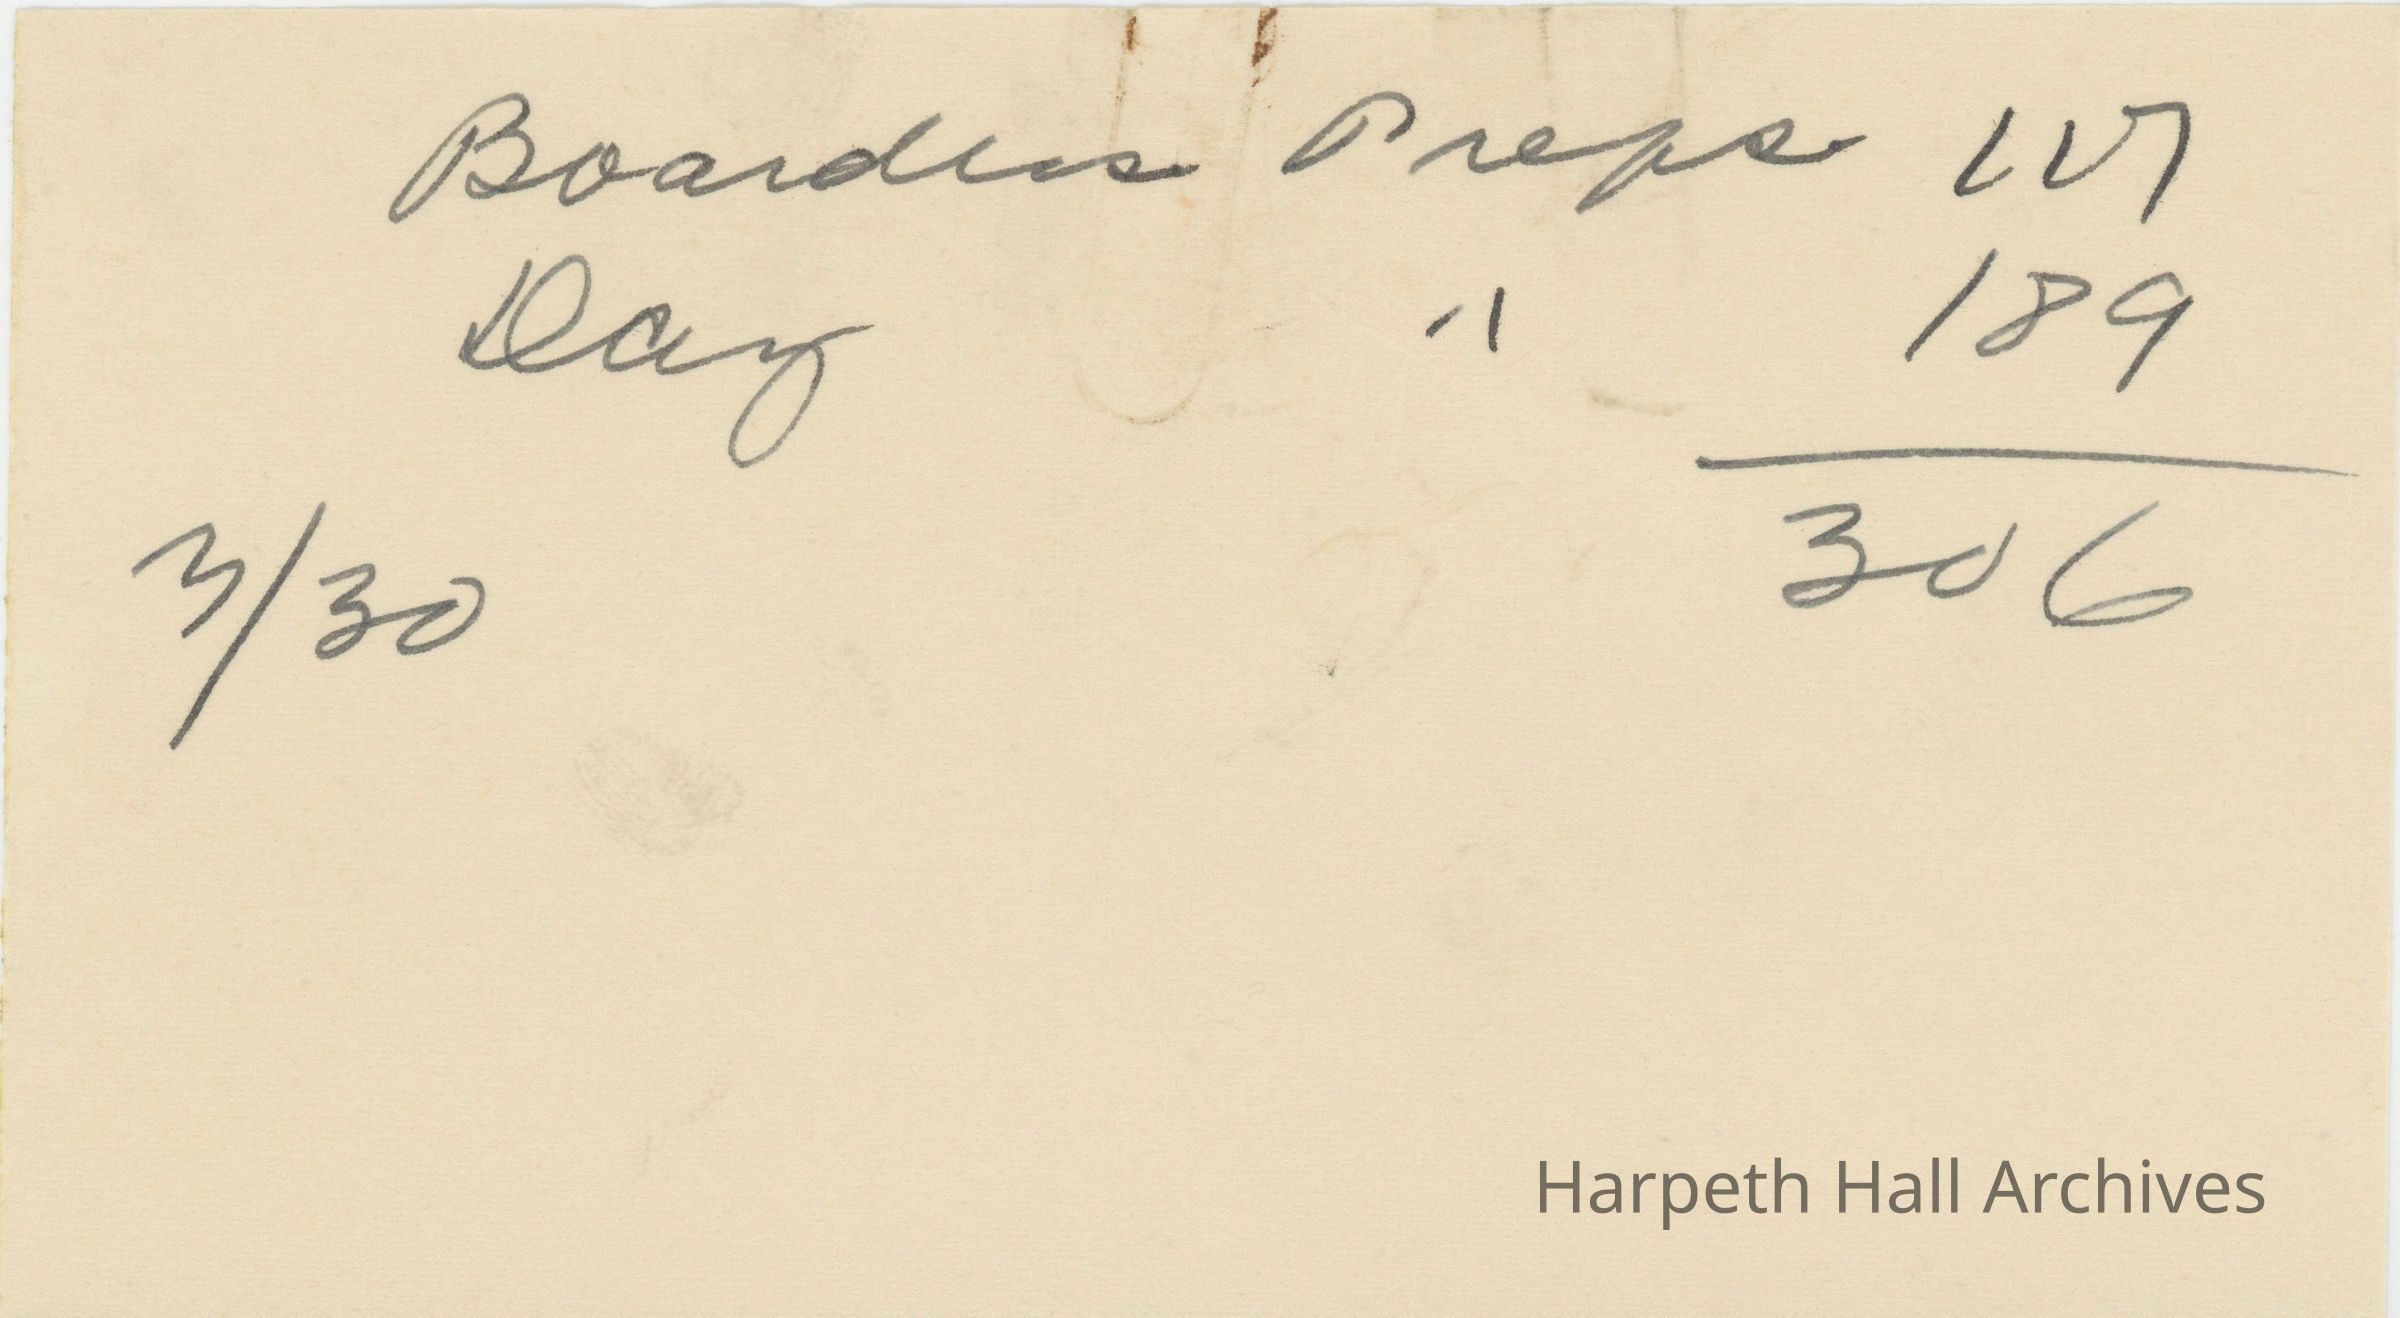 Boarders Preps 117
Day " 189
306
3/30
Harpeth Hall Archives